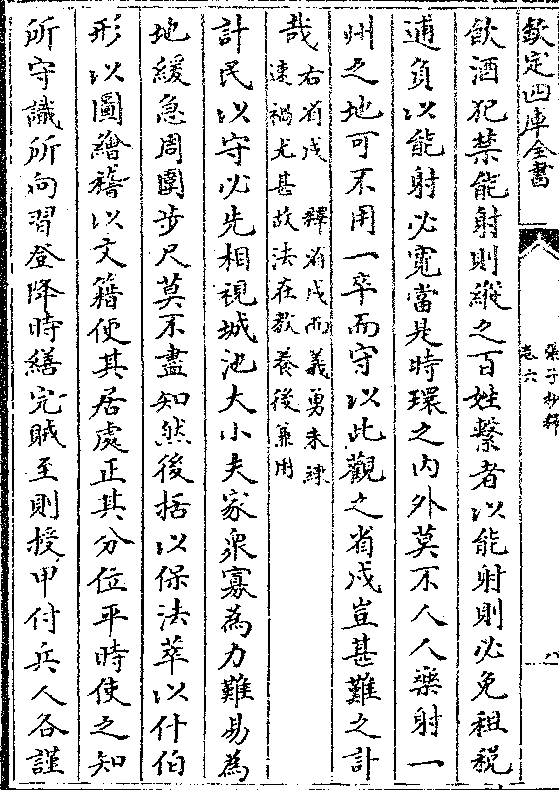 欽定四庫全書
張子抄釋
卷六
八
飲酒犯禁能射則縱之百姓繫者以能射則必免租稅
逋負以能射必寬當是時環之內外莫不人人樂射一
州之地可不用一卒而守以此觀之省戍豈甚難之計
哉
右省戍 釋省戍而義勇未練
速禍尤甚故法在教養後兼用
計民以守必先相視城池大小夫家衆寡為力難易為
地緩急周圍步尺莫不盡知然後括以保法萃以什伯
形以圖繪稽以文籍使其居處正其分位平時使之知
所守識所向習登降時繕完賊至則授甲付兵人各謹